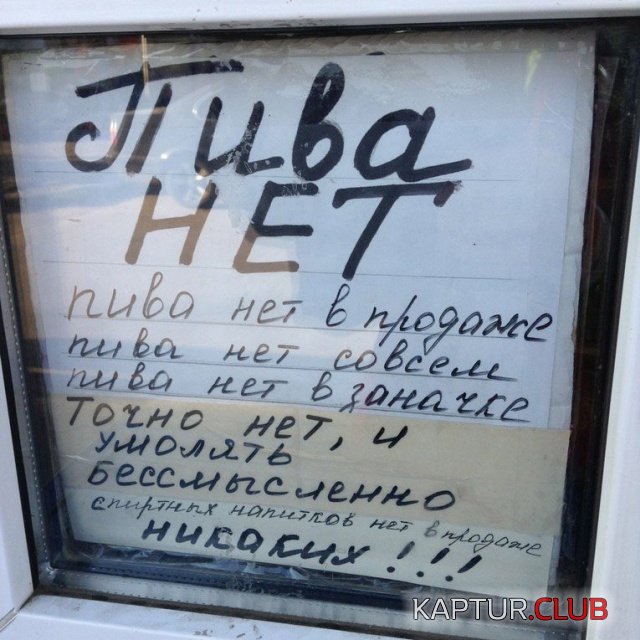 Пива
НЕТ
пива нет в продаже
пива нет совсем
пива нет в заначке
Точно нет, и
умолять
бессмысленно
спиртных напитков нет в продаже
никаких!!!
KAPTUR.CLUB